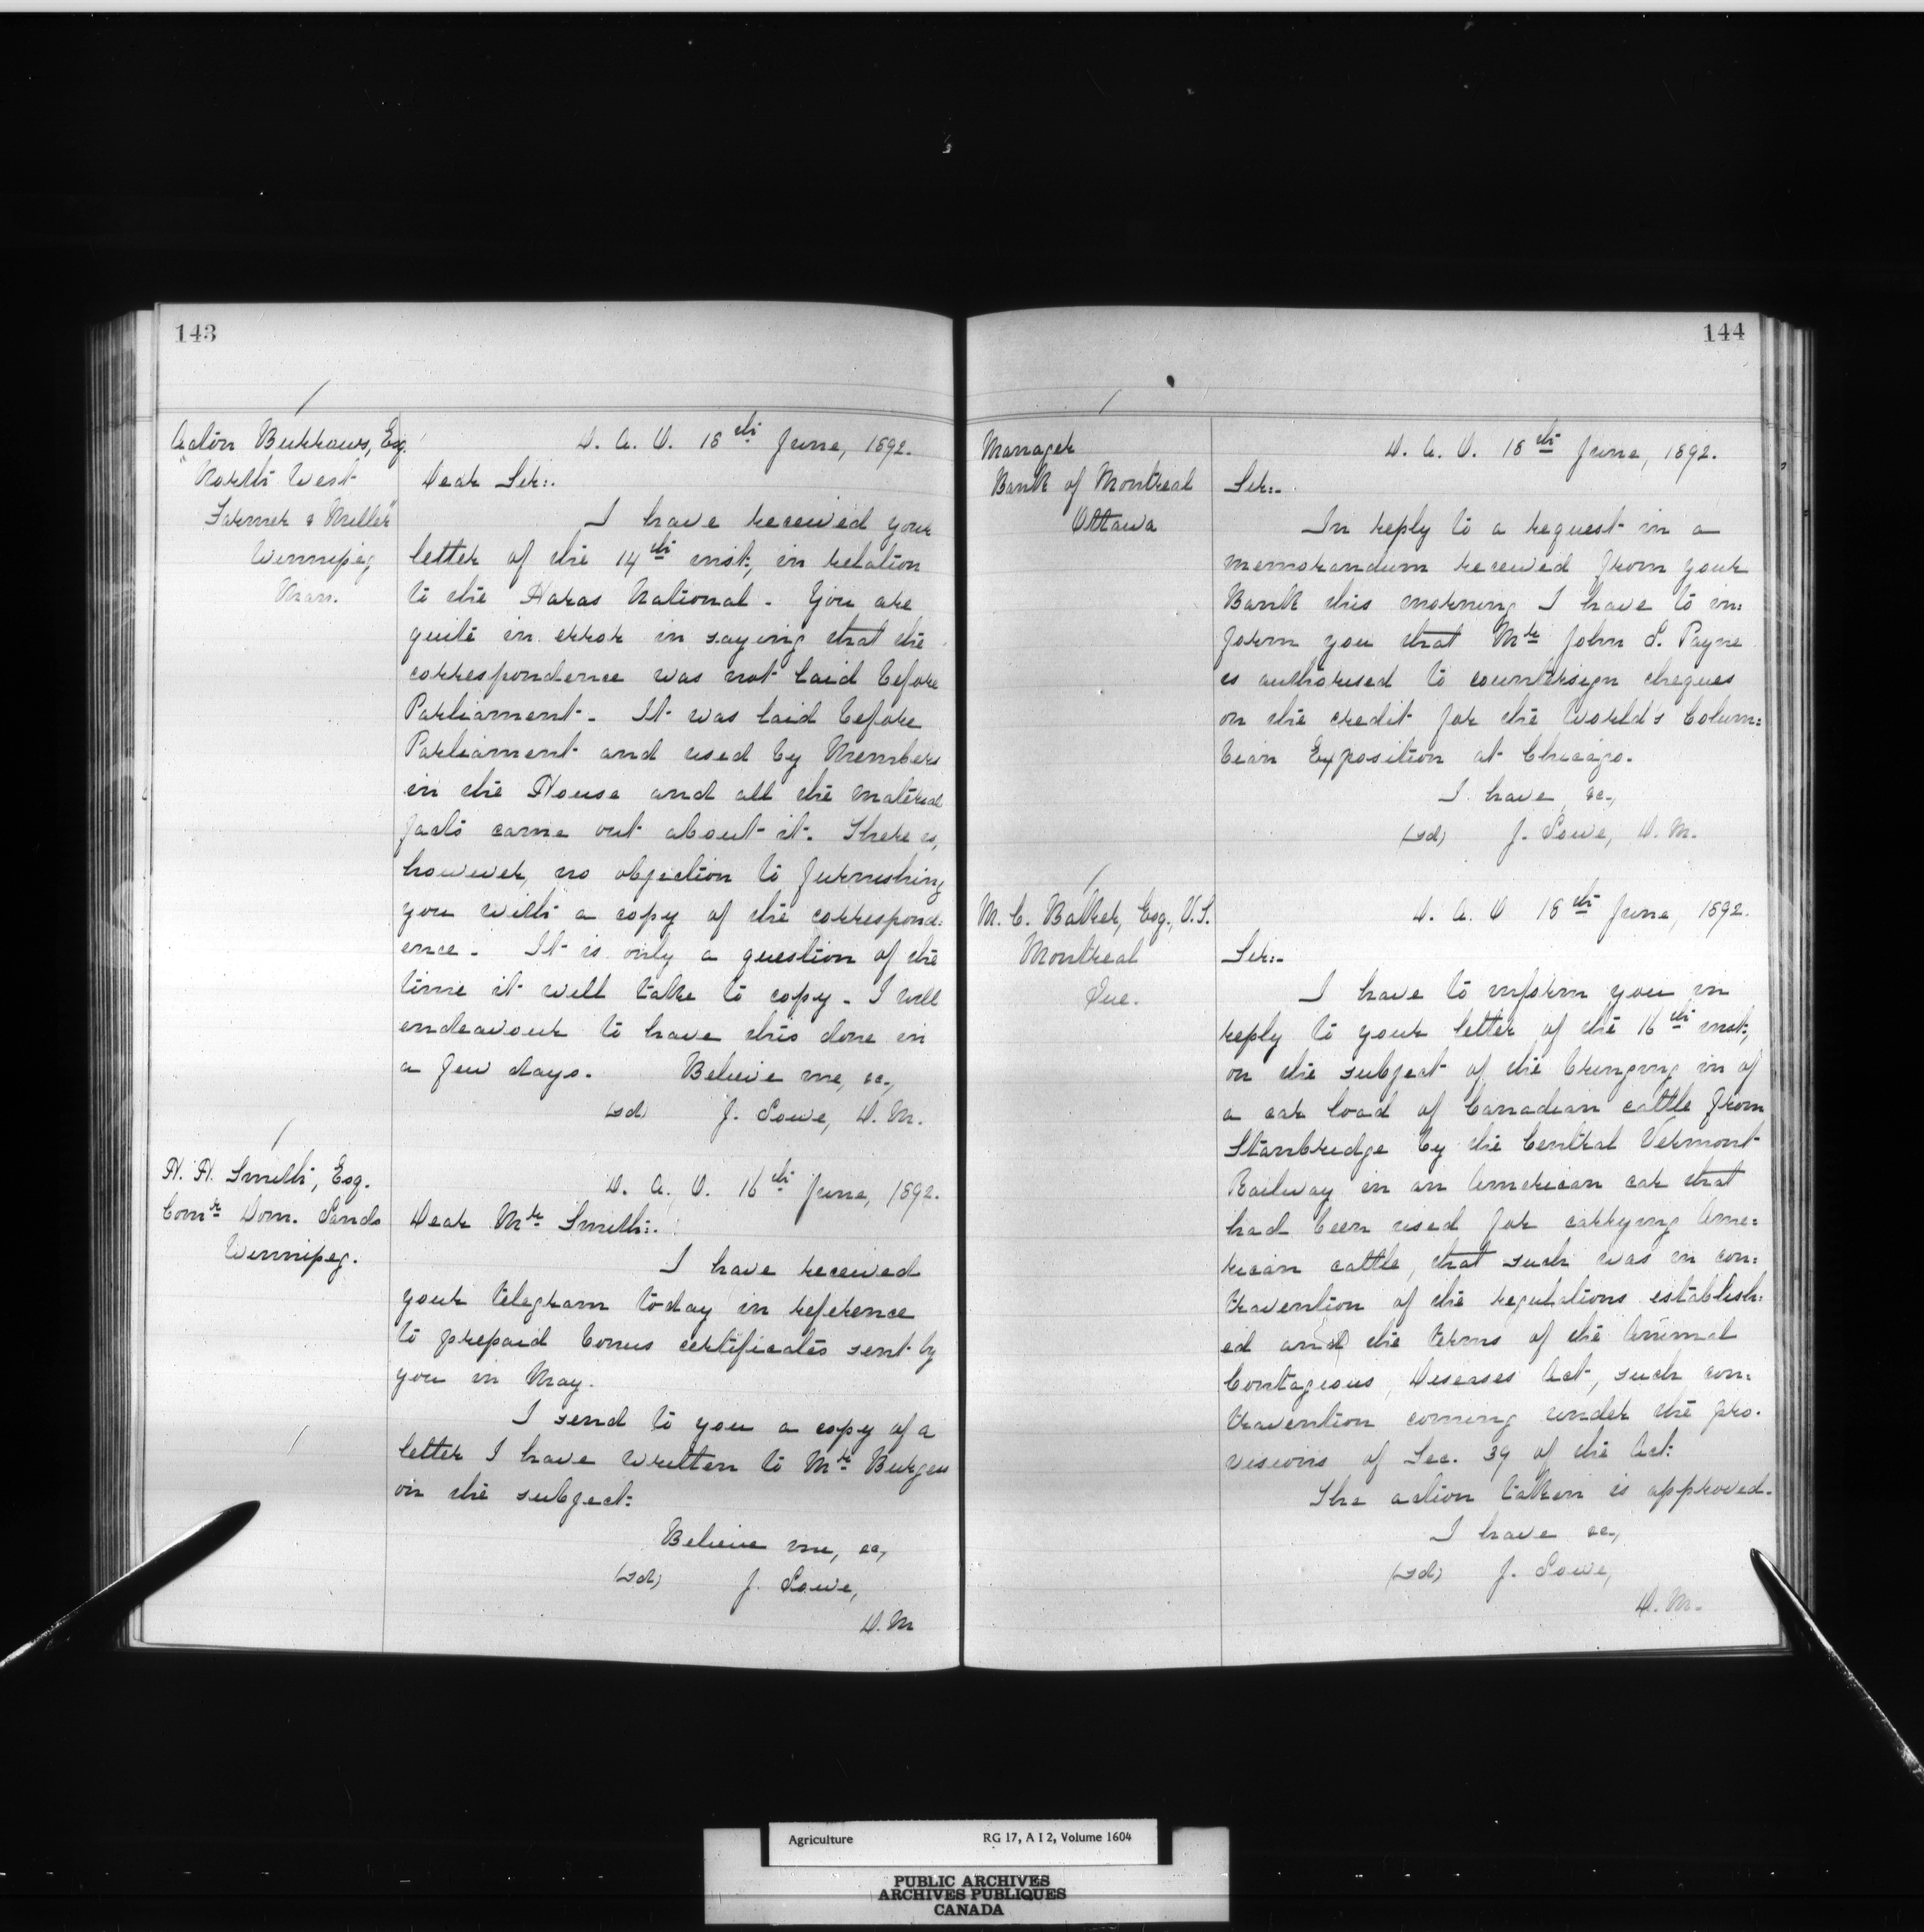 143
Acton Burrows, Esq.
"North West
Farmer & Miller"
Winnipeg
Man.
D. A. O. 18th June, 1892.
Dear Sir:-
I have received your
letter of the 14th inst, in relation
to the Haras National. You are
quite in error in saying that the
correspondence was not laid before
Parliament. It was laid before
Parliament and used by Members
in the House and all the material
facts came out about it. There is,
however, no objection to furnishing
you with a copy of the correspond-
ence. It is only a question of the
time it will take to copy. I will
endeavour to have this done in
a few days. Believe me, &c.,
(sd) J. Lowe, D. M.
H. H. Smith, Esq.
Comr Dom. Lands
Winnipeg.
D. A. O. 16th June, 1892.
Dear Mr Smith:-
I have received
your telegram today in reference
to prepaid bonus certificates sent by
you in May.
I send to you a copy of a
letter I have written to Mr Burgess
on the subject.
Believe me, &c,
(sd) J. Lowe,
D. M
144
Manager
Bank of Montreal
Ottawa
D. A. O. 18th June, 1892.
Sir:-
In reply to a request in a
memorandum received from your
Bank this morning I have to in:
form you that Mr John S. Payne
is authorised to countersign cheques
on the credit for the World's Colum:
bian Exposition at Chicago.
I have, &c.,
(sd) J. Lowe, D. M.
M. C. Baker, Esq., V.S.
Montreal
Que.
D. A. O 18th June, 1892.
Sir:-
I have to inform you in
reply to your letter of the 16th inst,
on the subject of the bringing in of
a car load of Canadian cattle from
Stanbridge by the Central Vermont
Railway in an American car that
had been used for carrying Ame:
rican cattle, that such was in con:
travention of the regulations establish:
ed and the terms of the Animal
Contagious Diseases Act, such con:
travention coming under the pro.
visions of Sec. 39 of the Act.
The action taken is approved.
I have &c.,
(sd) J. Lowe,
D. M.
Agriculture RG 17, A I 2, Volume 1604
PUBLIC ARCHIVES
ARCHIVES PUBLIQUES
CANADA